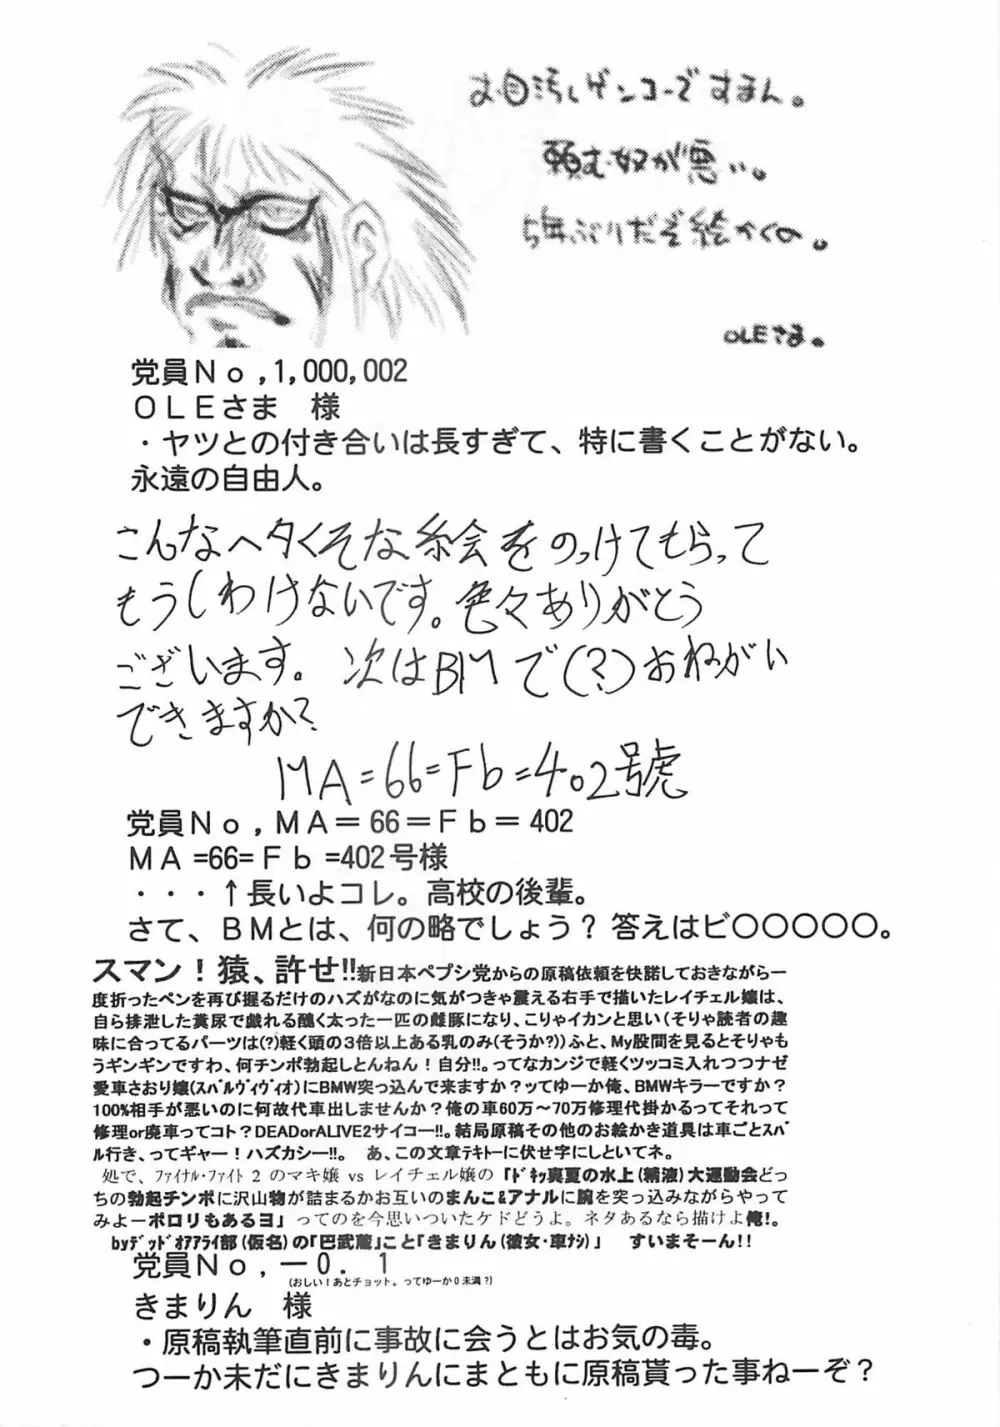 お目汚しゲンコーですまん。
頼む奴が悪い。
5年ぶりだぞ絵かくの。
OLEさま。
党員Ｎｏ,1,000,002
ＯＬＥさま　様
・ヤツとの付き合いは長すぎて、特に書くことがない。
永遠の自由人。
こんなヘタくそな絵をのっけてもらって
もうしわけないです。色々ありがとう
ございます。次はBMで(?)おねがい
できますか?
MA=66=Fb=402号虎
党員Ｎｏ,ＭＡ＝66＝Ｆｂ＝402
ＭＡ=66=Ｆｂ=402号様
・・・↑長いよコレ。高校の後輩。
さて、ＢＭとは、何の略でしょう？答えはビ〇〇〇〇〇。
スマン！猿、許せ!!新日本ペプシ党からの原稿依頼を快諾しておきながら一
度折ったペンを再び握るだけのハズがなのに気がつきゃ震える右手で描いたレイチェル嬢は、
自ら排泄した糞尿で戯れる醜く太った一匹の雌豚になり、こりゃイカンと思い(そりゃ読者の趣
味に合ってるパーツは(?)軽く頭の３倍以上ある乳のみ(そうか?))ふと、My股間を見るとそりゃも
うギンギンですわ、何チンポ勃起しとんねん！自分!!。ってなカンジで軽くツッコミ入れつつナゼ
愛車さおり嬢(ｽﾊﾞﾙｳﾞｨｳﾞｨｵ)にBMW突っ込んで来ますか？ってゆーか俺、BMWキラーですか？
100%相手が悪いのに何故代車出しませんか？俺の車60万～70万修理代掛かるってそれって
修理or廃車ってコト？DEADorALIVE2サイコー!!。結局原稿その他のお絵かき道具は車ごとｽﾊﾞ
ﾙ行き、ってギャー！ハズカシー!!。　あ、この文章ﾃｷﾄｰに伏せ字にしといてネ。
処で、ﾌｧｲﾅﾙ･ﾌｧｲﾄ２のマキ嬢 vs レイチェル嬢の「ﾄﾞｷｯ真夏の水上(精液)大運動会どっ
ちの勃起チンポに沢山物が詰まるかお互いのまんこ&アナルに腕を突っ込みながらやって
みよーポロリもあるヨ」ってのを今思いついたケドどうよ。ネタあるなら描けよ俺!。
byﾃﾞｯﾄﾞｵｱｱﾗｲ部(仮名)の「巴武蔵」こと「きまりん(彼女･車ﾅｼ)」　すいませーん!!
党員Ｎｏ,－０．１
(おしい！あとチョット。ってゆーか０未満？)
きまりん　様
・原稿執筆直前に事故に会うとはお気の毒。
つーか未だにきまりんにまともに原稿貰った事ねーぞ？